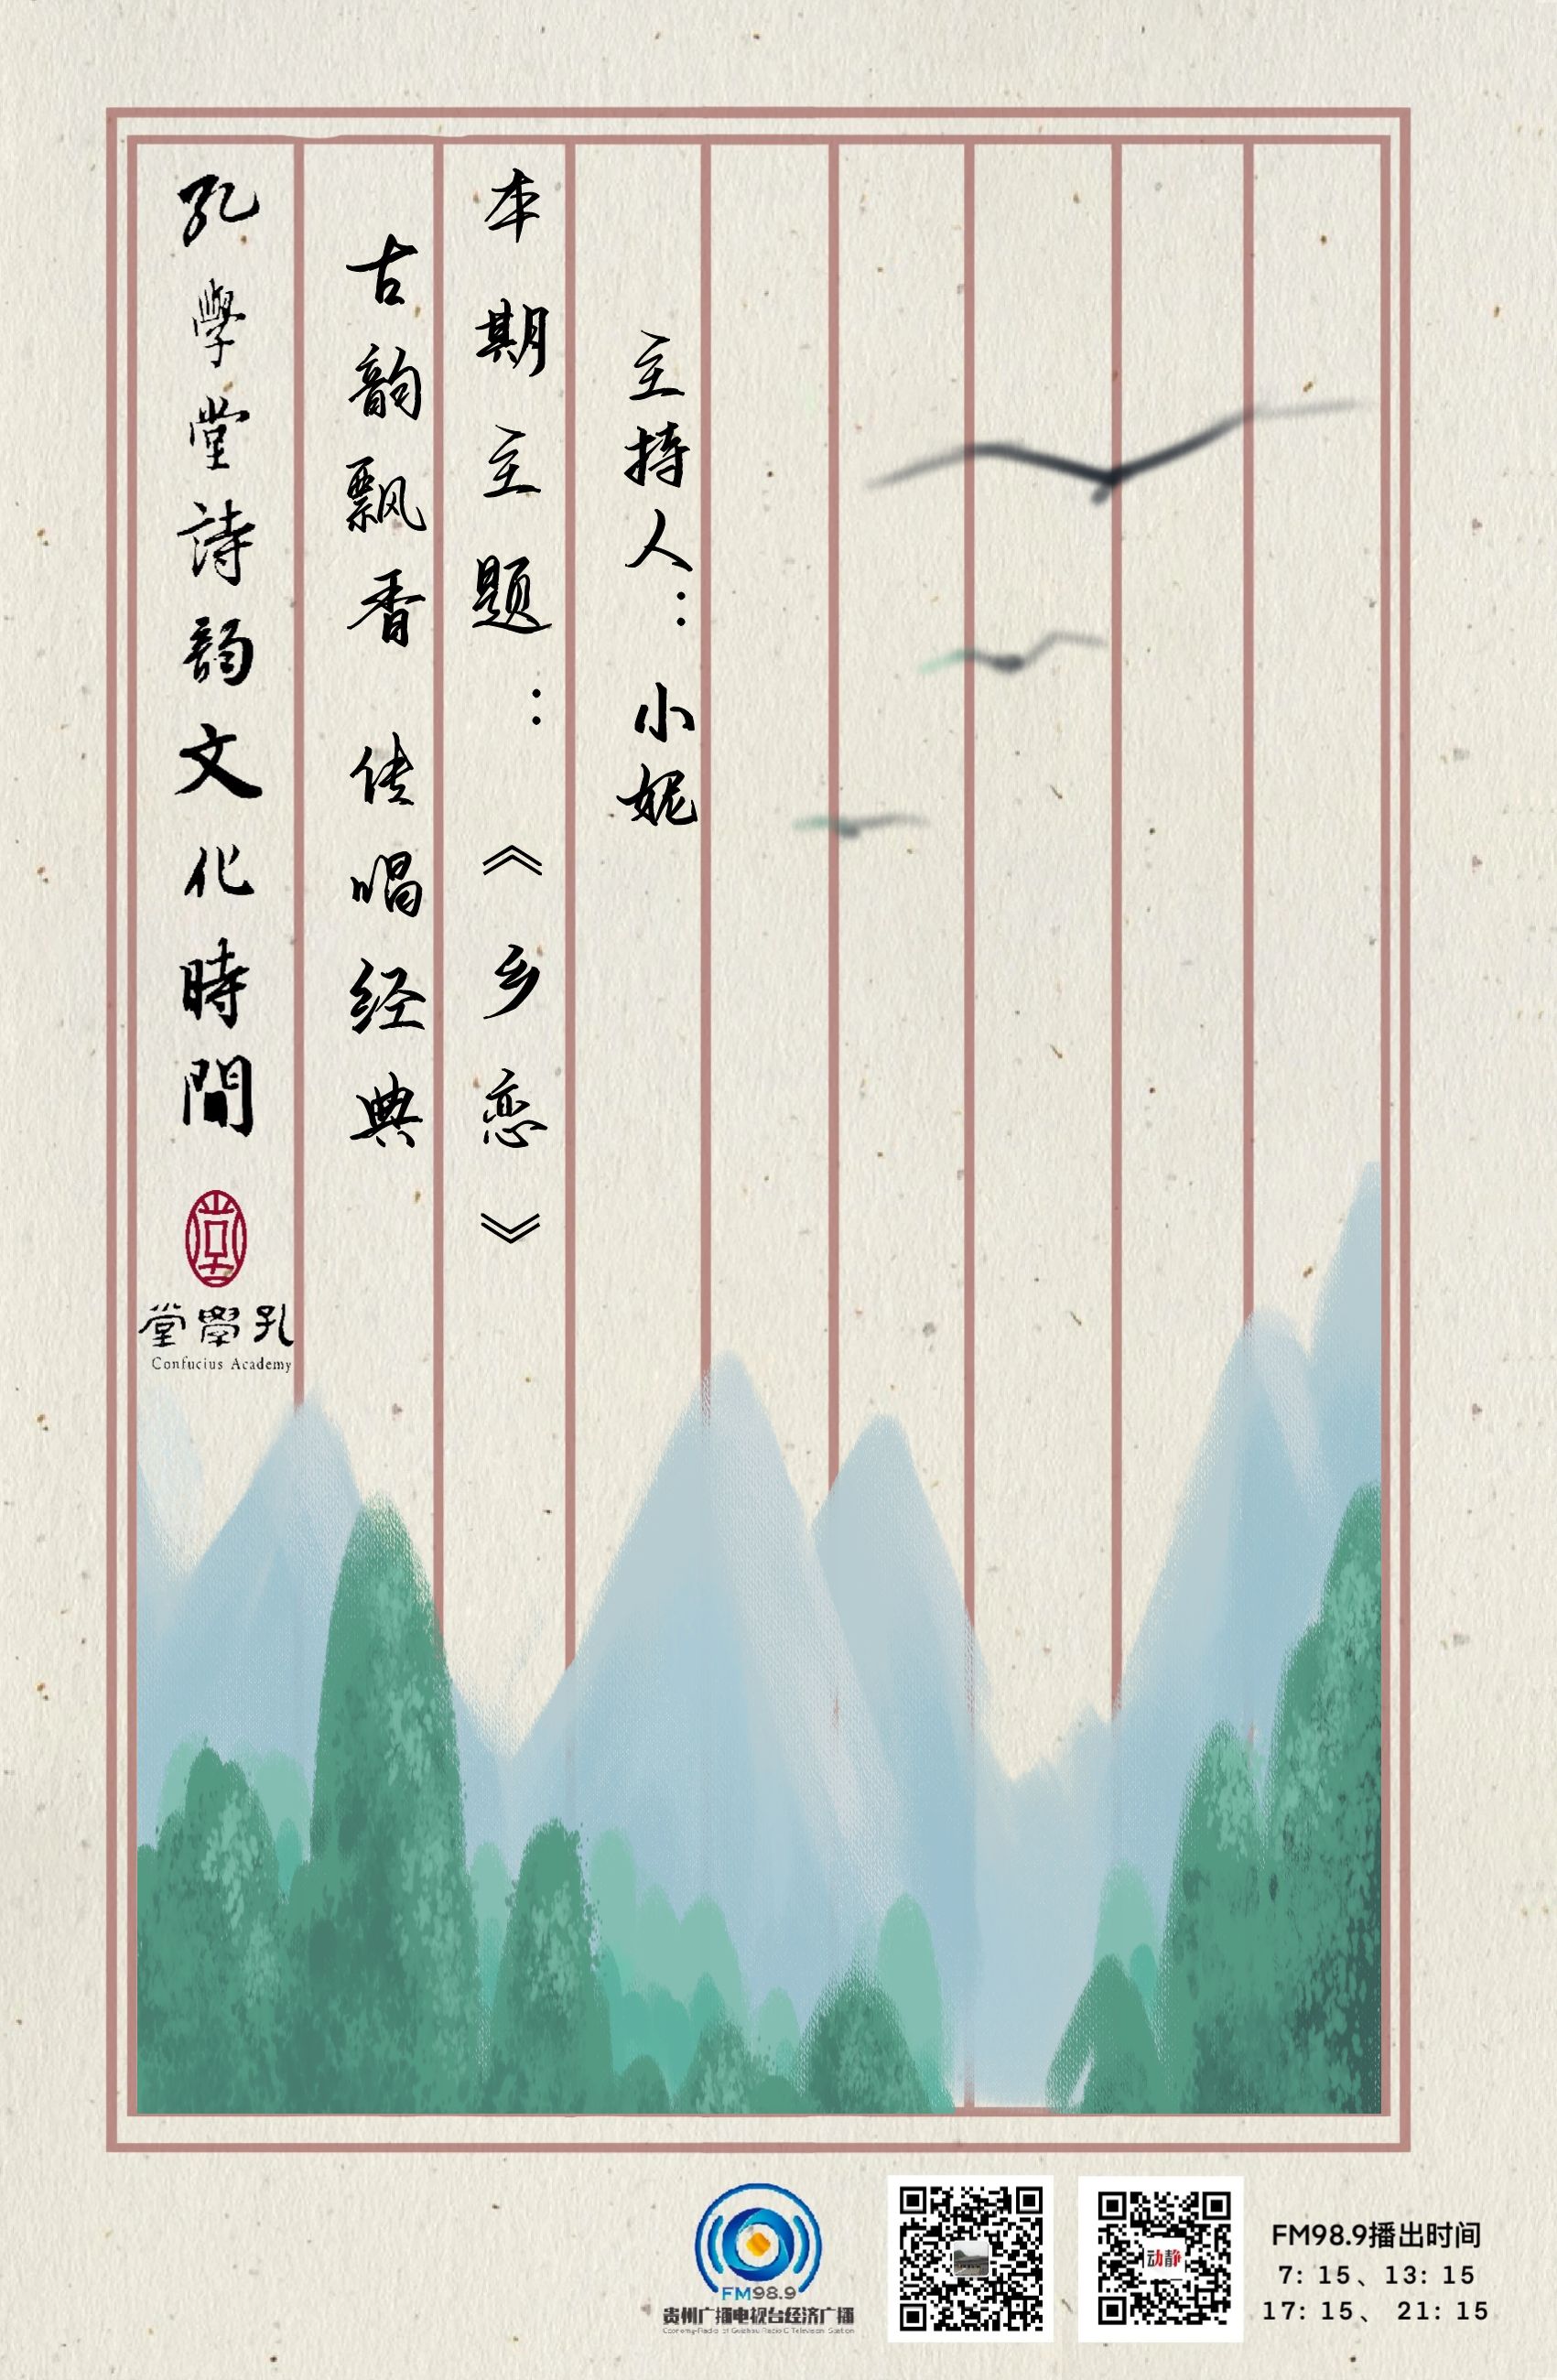 孔學堂詩韵文化時間
古韵飘香 传唱经典
本期主题：《乡恋》
主持人：小妮
堂學孔
Confucius Academy
FM98.9
贵州广播电视台经济广播
动静
FM98.9播出时间
7: 15、13: 15
17: 15、 21: 15